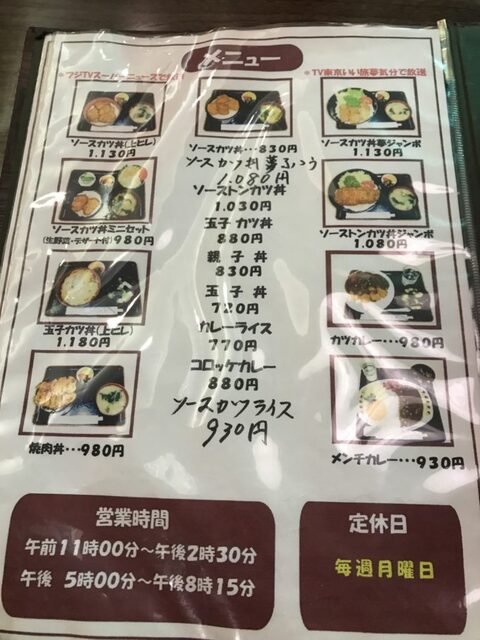 メニュー
*フジTVスーパーニュースで
*TV東京いい旅夢気分で放送
ソースカツ丼(上ヒレ)
1.130円
ソースカツ丼ミニセット
(生野菜・デザート付)980円
玉子カツ丼(上ヒレ)
1.180円
焼肉丼・・・980円
ソースカツ丼・・・830円
ソースかつ丼夢ふつう
1.080円
ソーストンカツ丼
1.030円
玉子カツ丼
880円
親子丼
830円
玉子丼
720円
カレーライス
770円
コロッケカレー
880円
ソースかつライス
930円
ソースカツ丼夢ジャンボ
1.130円
ソーストンカツ丼ジャンボ
1.080円
カツカレー・・・980円
メンチカレー・・・930円
営業時間
午前11時00分~午後2時30分
午後 5時00分~午後8時15分
定休日
毎週月曜日